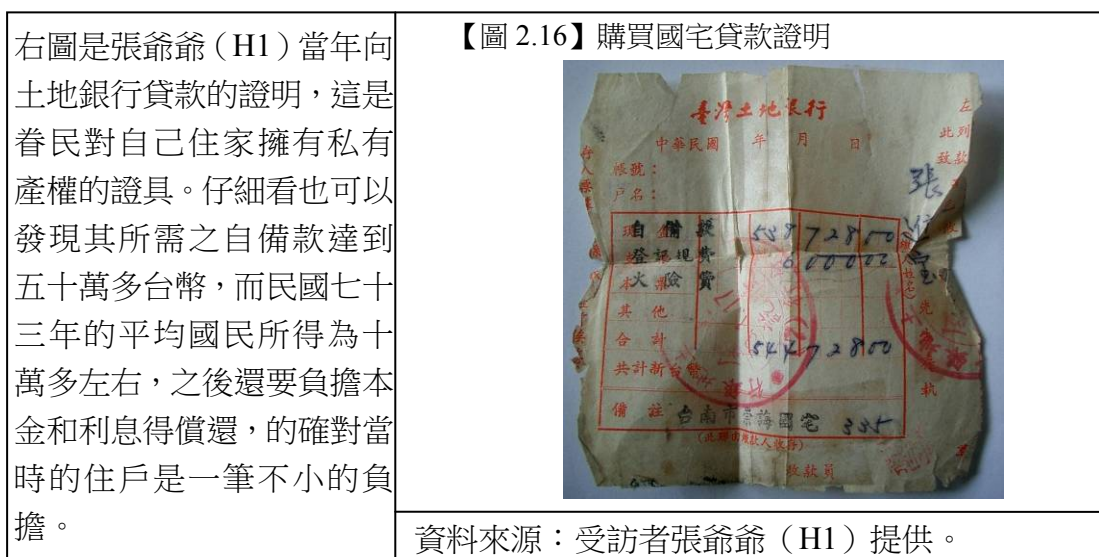 右圖是張爺爺（H1）當年向
土地銀行貸款的證明，這是
眷民對自己住家擁有私有
產權的證具。仔細看也可以
發現其所需之自備款達到
五十萬多台幣，而民國七十
三年的平均國民所得為十
萬多左右，之後還要負擔本
金和利息得償還，的確對當
時的住戶是一筆不小的負
擔。
【圖 2.16】購買國宅貸款證明
臺灣土地銀行
中華民國 年 月 日
帳號：
戶名：
張
自備款 538728 00
登記規費 6000 00
火險費
其他
合計 544728 00
共計新台幣
備註 台南市 國宅 335
收款員
資料來源：受訪者張爺爺（H1）提供。